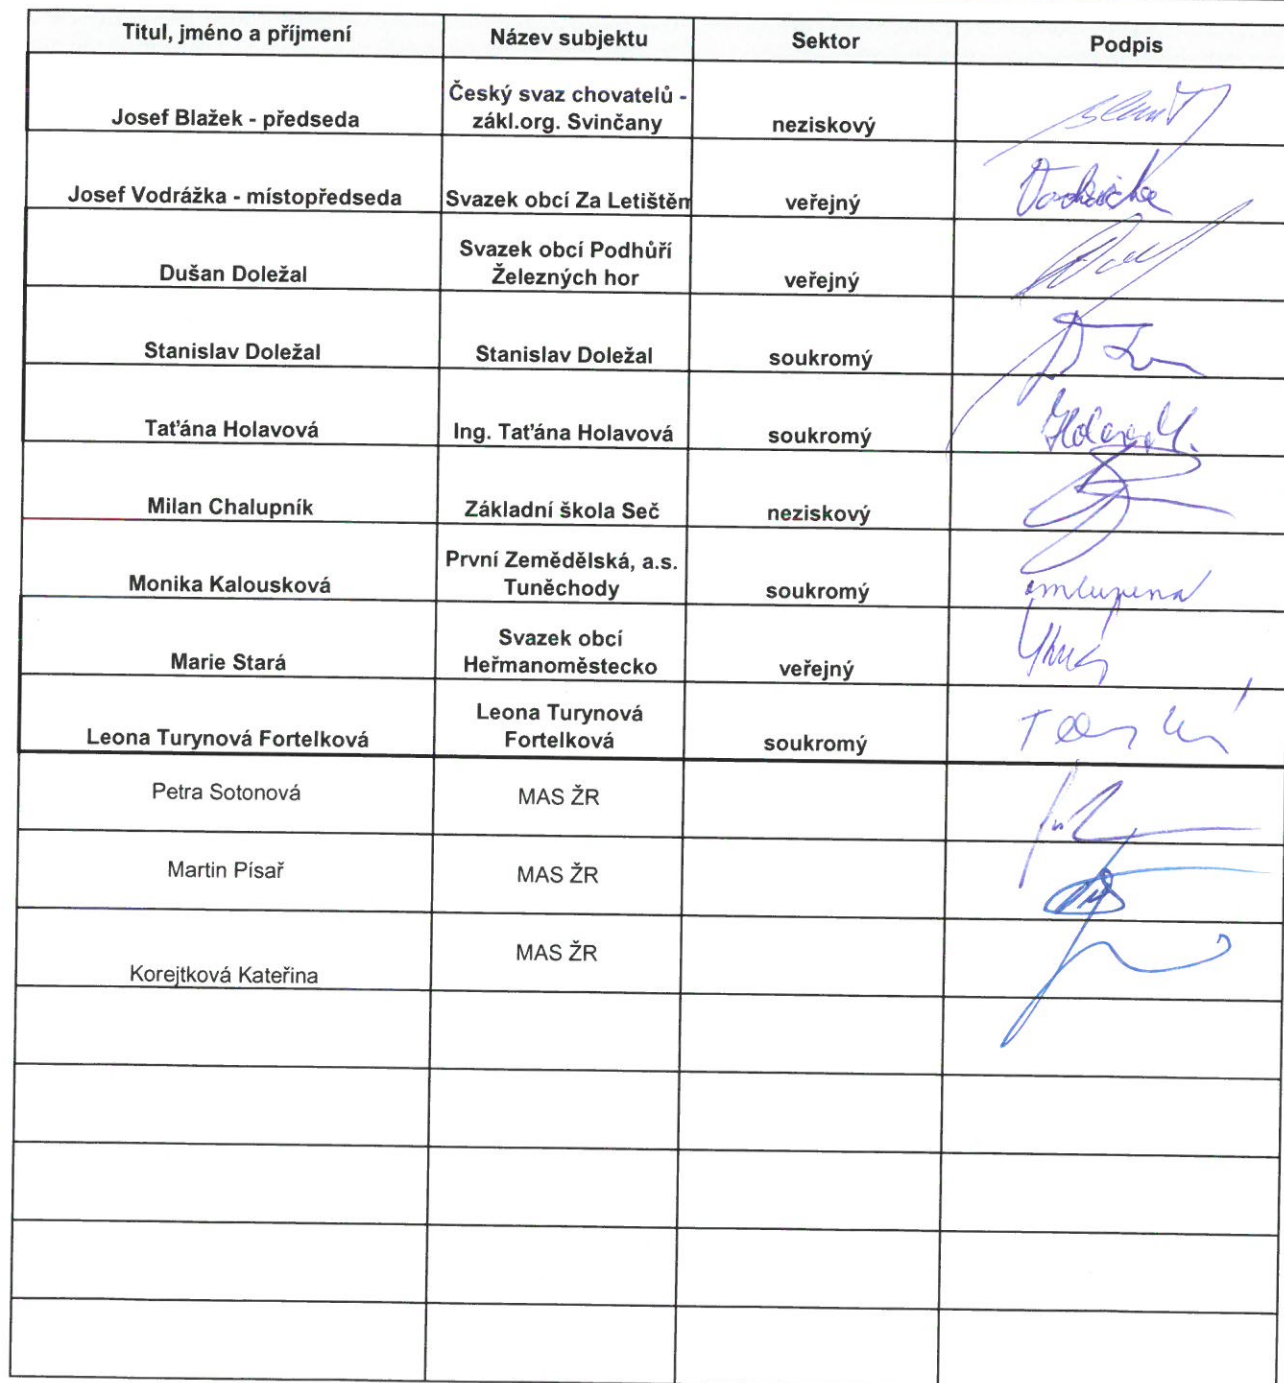 Titul, jméno a příjmení Název subjektu Sektor Podpis
Josef Blažek - předseda Český svaz chovatelů - neziskový
zákl.org. Svinčany
Josef Vodrážka - místopředseda Svazek obcí Za Letištěm veřejný
Dušan Doležal Svazek obcí Podhůří veřejný
Železných hor
Stanislav Doležal Stanislav Doležal soukromý
Taťána Holavová Ing. Taťána Holavová soukromý
Milan Chalupník Základní škola Seč neziskový
Monika Kalousková První Zemědělská, a.s. soukromý omluvena
Tuněchody
Marie Stará Svazek obcí veřejný
Heřmanoměstecko
Leona Turynová Fortelková Leona Turynová soukromý
Fortelková
Petra Sotonová MAS ŽR
Martin Písař MAS ŽR
Korejtková Kateřina MAS ŽR